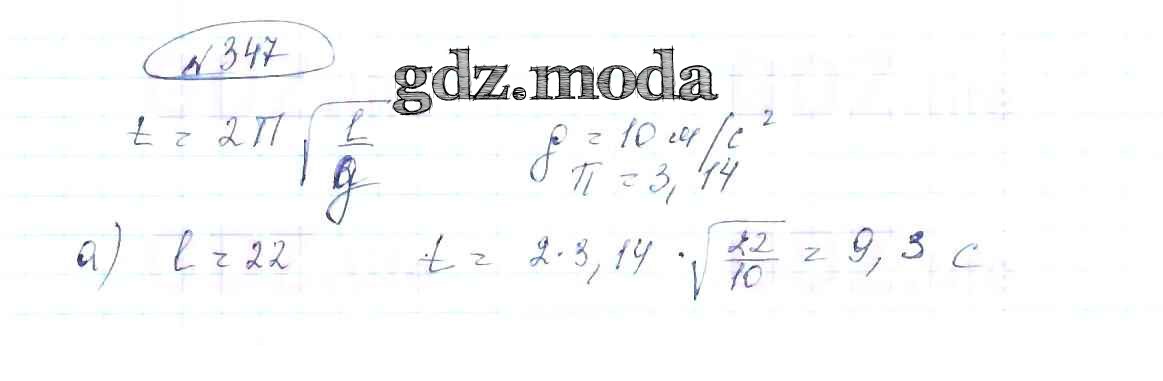 №347
gdz.moda
t = 2π √(l/g) g = 10 м/с²
π = 3,14
а) l = 22 t = 2·3,14 · √(22/10) = 9,3 с